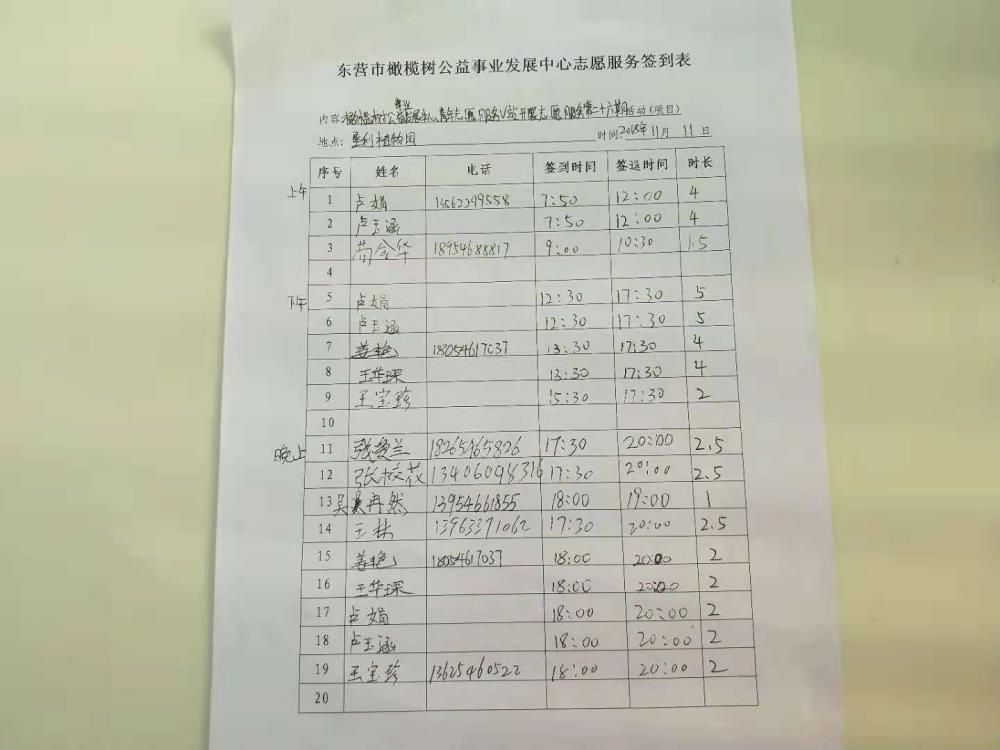 东营市橄榄树公益事业发展中心志愿服务签到表
内容:橄榄树公益事业发展中心青年志愿服务V站开展志愿服务第二十六期活动(项目)
地点:垦利植物园 时间:2018年11月11日
序号 姓名 电话 签到时间 签退时间 时长
上午 1 卢娟 13562249558 7:50 12:00 4
2 卢玉涵 7:50 12:00 4
3 苟令华 18954688817 9:00 10:30 1.5
4
下午 5 卢娟 12:30 17:30 5
6 卢玉涵 12:30 17:30 5
7 姜艳 18054617037 13:30 17:30 4
8 王华琛 13:30 17:30 4
9 王宝珍 15:30 17:30 2
10
晚上 11 张爱兰 18265465826 17:30 20:00 2.5
12 张校花 13406094316 17:30 20:00 2.5
13 吴冉然 13954661855 18:00 19:00 1
14 王林 13963371062 17:30 20:00 2.5
15 姜艳 1805467037 18:00 20:00 2
16 王华琛 18:00 20:00 2
17 卢娟 18:00 20:00 2
18 卢玉涵 18:00 20:00 2
19 王宝珍 13625460522 18:00 20:00 2
20